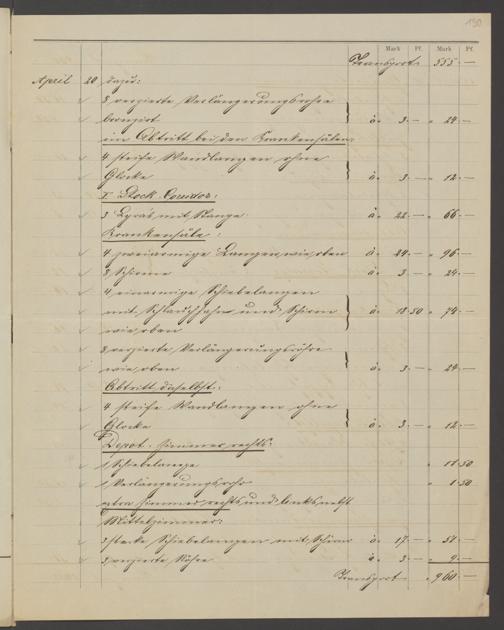 190
Mark Pf. Mark Pf.
Transport 555 —
April 20 dazu:
8 verzierte Verlängerungsrohre
bronzirt à 3 — " 24 —
ein Abtritt bei den Krankensälen
4 steife Wandlangen ohne
Glocke à 3 — " 12 —
I. Stock. Corridor:
3 Lyras mit Stange à 22 — " 66 —
Krankensäle:
4 zweiarmige Langen, wie oben à 24 — " 96 —
8 Schirme à 3 — " 24 —
4 einarmige Schiebelangen
mit Schlauchhahn und Schirm à 18 50 " 74 —
wie oben
8 verzierte Verlängerungsrohre
wie oben à 3 — " 24 —
Abtritt daselbst:
4 steife Wandlangen ohne
Glocke à 3 — " 12 —
Depot-Zimmer rechts:
1 Schiebelange " 11 50
1 Verlängerungsrohr " 1 50
extra Zimmer rechts und links nebst
Mittelzimmer:
3 starke Schiebelangen mit Schirm à 17 — " 51 —
3 verzierte Röhre à 3 — " 9 —
Transport " 960 —